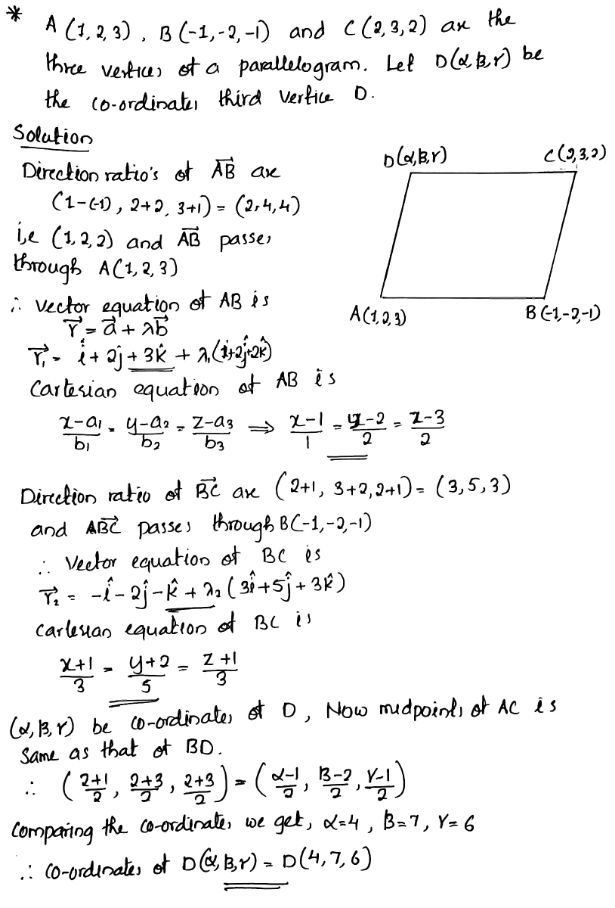 * A (1, 2, 3) , B (-1, -2, -1) and C (2, 3, 2) are the
three vertices of a parallelogram. Let D(α, β, γ) be
the co-ordinates third vertice D.
Solution
Direction ratio's of \overrightarrow{AB} are
(1-(-1) , 2+2, 3+1) = (2, 4, 4)
i,e (1, 2, 2) and \overrightarrow{AB} passes
through A(1, 2, 3)
∴ Vector equation of AB is
\vec{r} = \vec{a} + λ\vec{b}
\vec{r}₁ = î + 2ĵ + 3k̂ + λ₁(î+2ĵ+2k̂)
Cartesian equation of AB is
(x-a₁)/b₁ = (y-a₂)/b₂ = (z-a₃)/b₃ ⇒ (x-1)/1 = (y-2)/2 = (z-3)/2
D(α, β, γ)
C(2, 3, 2)
A(1, 2, 3)
B(-1, -2, -1)
Direction ratio of \overrightarrow{BC} are (2+1, 3+2, 2+1) = (3, 5, 3)
and \overrightarrow{ABC} passes through B(-1, -2, -1)
∴ Vector equation of BC is
\vec{r}₂ = -î - 2ĵ - k̂ + λ₂ (3î + 5ĵ + 3k̂)
Cartesian equation of BC is
(x+1)/3 = (y+2)/5 = (z+1)/3
(α, β, γ) be co-ordinates of D , Now midpoints of AC is
same as that of BD.
∴ ((2+1)/2 , (2+3)/2 , (2+3)/2) = ((α-1)/2 , (β-2)/2 , (γ-1)/2)
Comparing the co-ordinates we get, α=4 , β=7, γ=6
∴ co-ordinates of D(α, β, γ) = D(4, 7, 6)